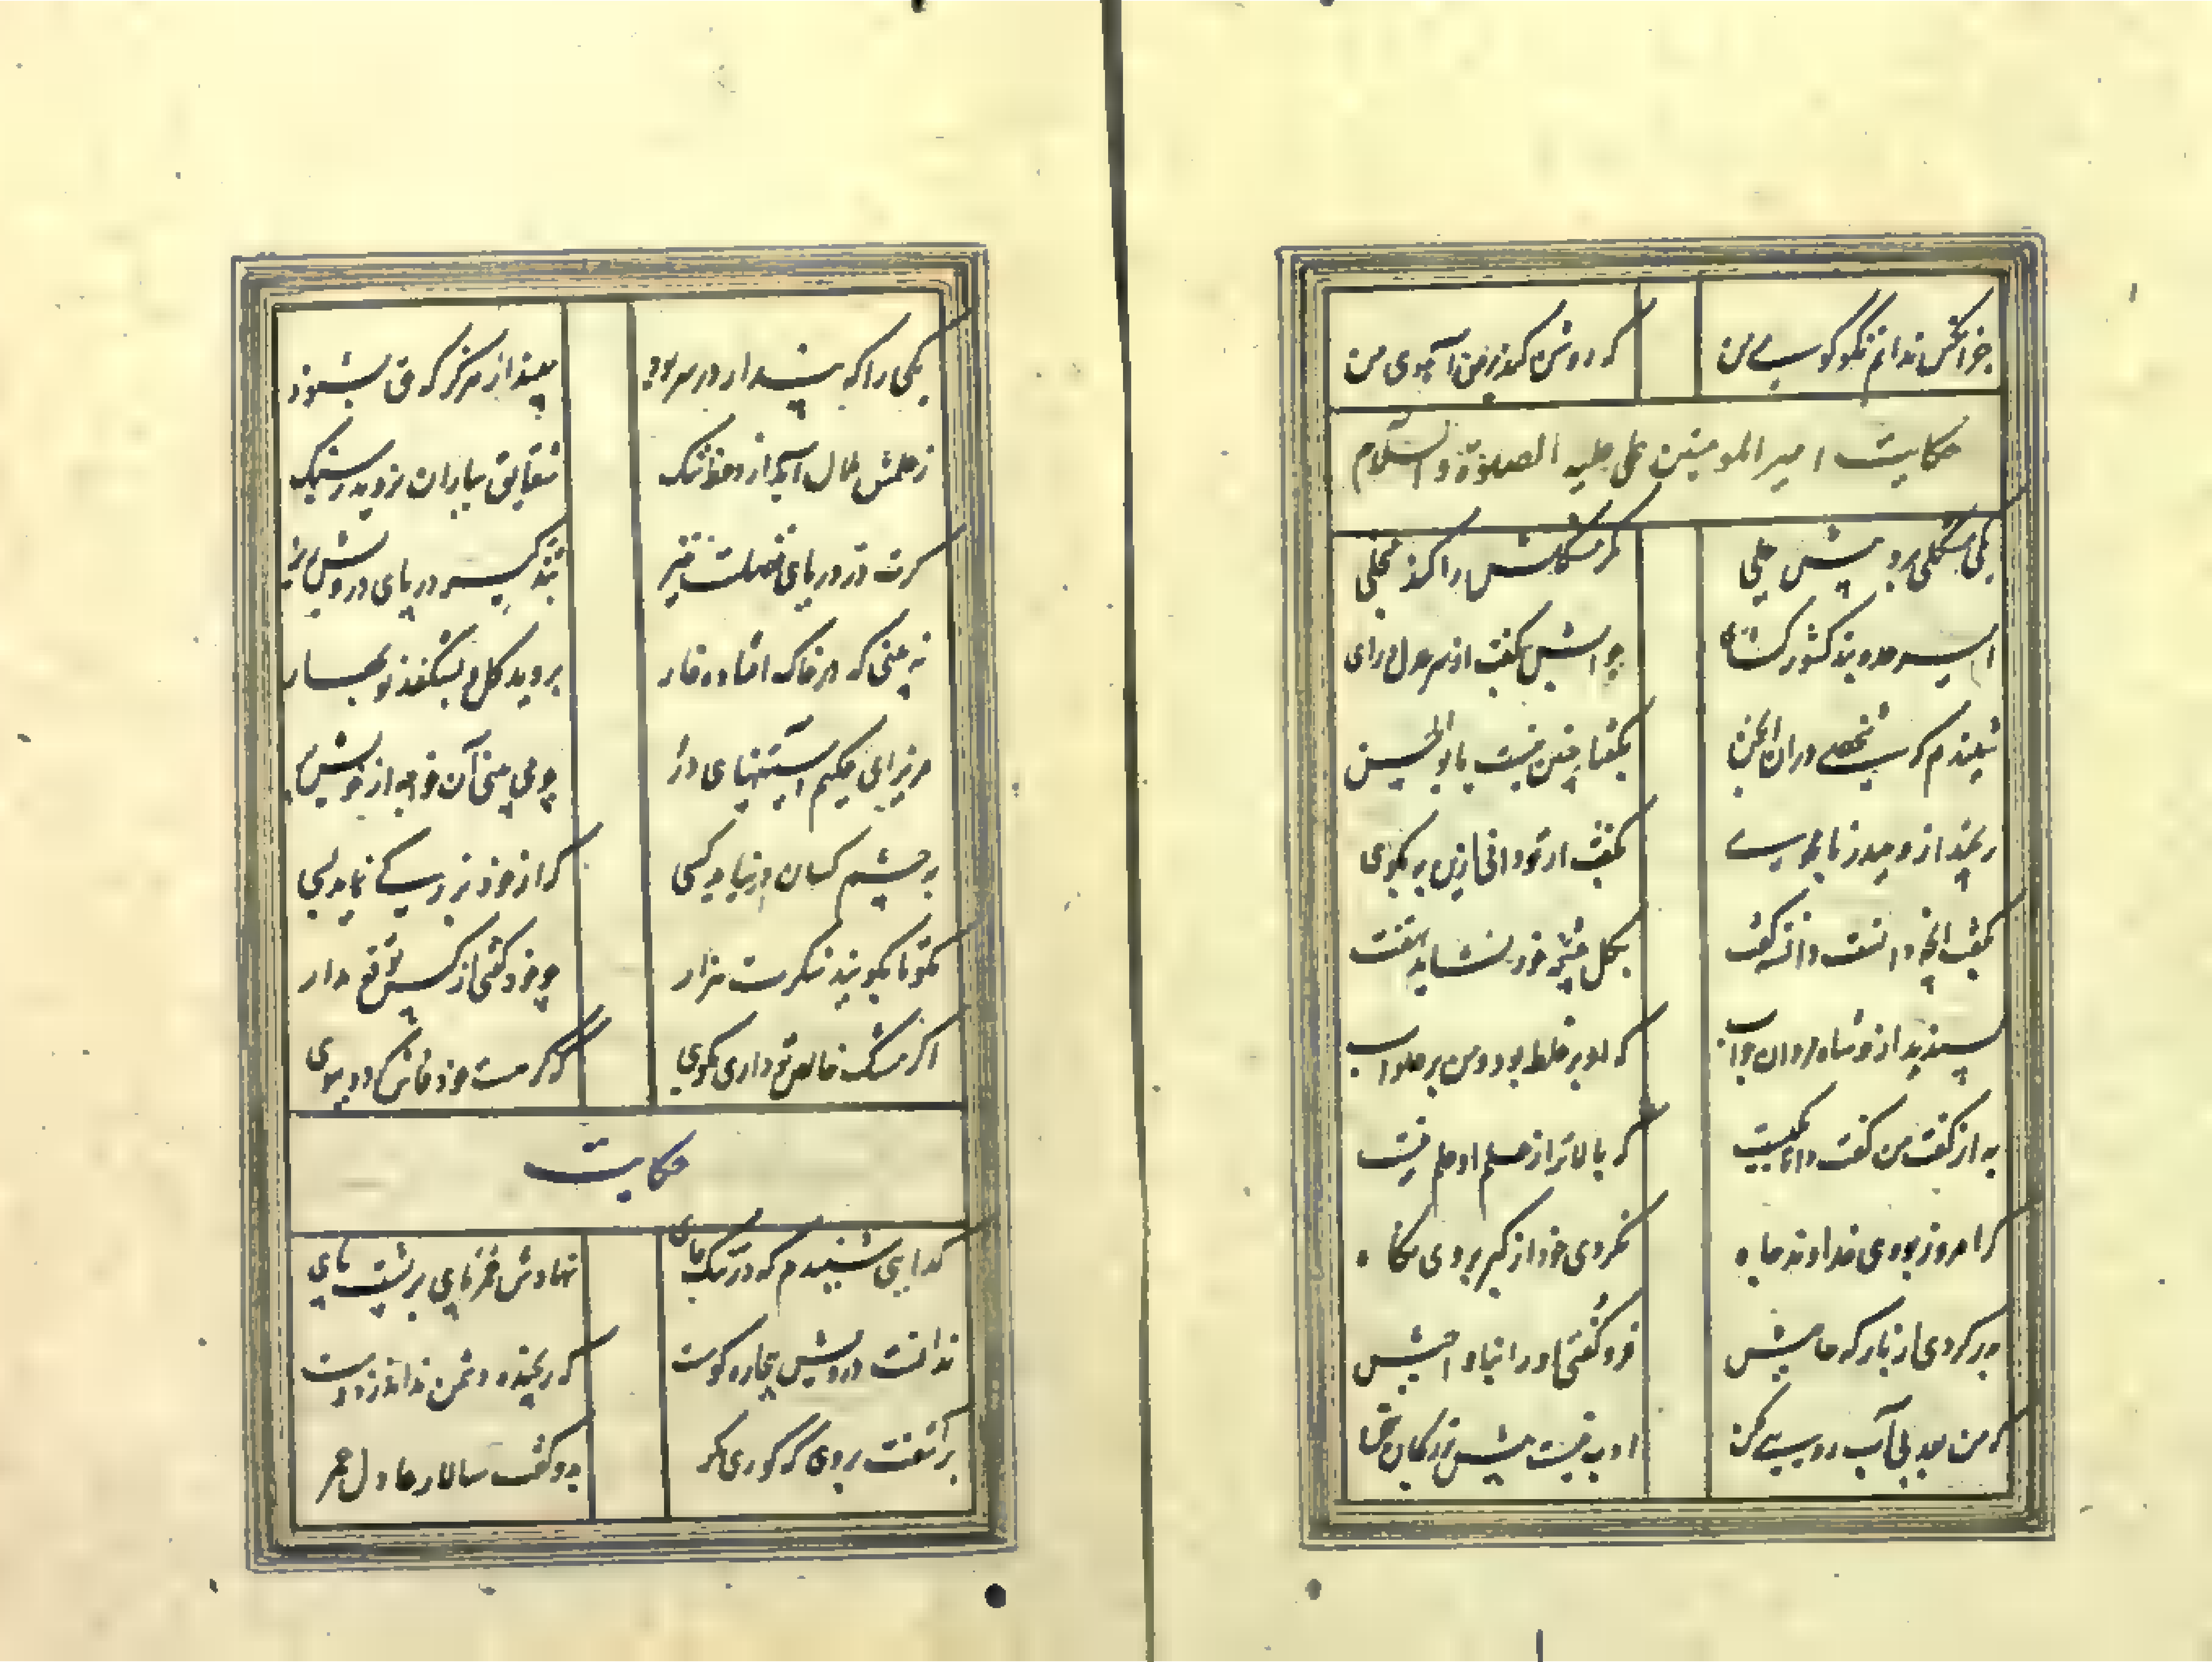 جز آنکس ندانم نکوگوی من که روشن کند بر من آهوی من
حکایت امیر المومنین علی علیه الصلوة والسلام
یکی مشکلی برد پیش علی مکر مشکلش را کند منجلی
امیر عدوبند کشورکشای جوابش بکفت از سر عدل و رای
شنیدم که شخصی دران انجمن بکفتا چنین نیست یا بوالحسن
نرنجید ازو حیدر نامجوی بکفت ار تو دانی ازین به بکوی
بکفت آنچه دانست و دانسته کفت بکل چشمه خور نشاید نهفت
پسندید ازو شاه مردان جواب که او بر غلط بود و من بر صواب
به از کفت من کفت و دانا یکیست که بالاتر از علم او علم نیست
کر امروز بودی خداوند جاه نکردی خود از کبر بر وی نکاه
بدر کردی از بارکه حاجبش فرو کوفتی ناواجبش
که من بعد بی آب رویی مکن ادب نیست پیش بزرکان سخن
یکی را که پندار در سر بود مپندار هرکز که حق بشنود
ز علمش ملال آید از وعظ ننک شقایق بباران نروید ز سنک
کرت در دریای فضلست خیز بتذکیر در پای درویش ریز
نه بینی که در خاک افتاده خار بروید کل و بشکفد نوبهار
مریز ای حکیم آستینهای در چو می بینی آن خواجه از خویش پر
به چشم کسان در نیاید کسی که از خود بزرکی نماید بسی
مکو تا بکویند شکرت هزار چو خود کفتی از کس توقع مدار
اکر مشک خالص تو داری مکوی که کر هست خود فاش کردد ببوی
حکایت
کدایی شنیدم که در تنک جای نهادش عمر پای بر پشت پای
ندانست درویش بیچاره کوست که رنجیده دشمن نداند ز دوست
برآشفت بر وی که کوری مکر بدو کفت سالار عادل عمر